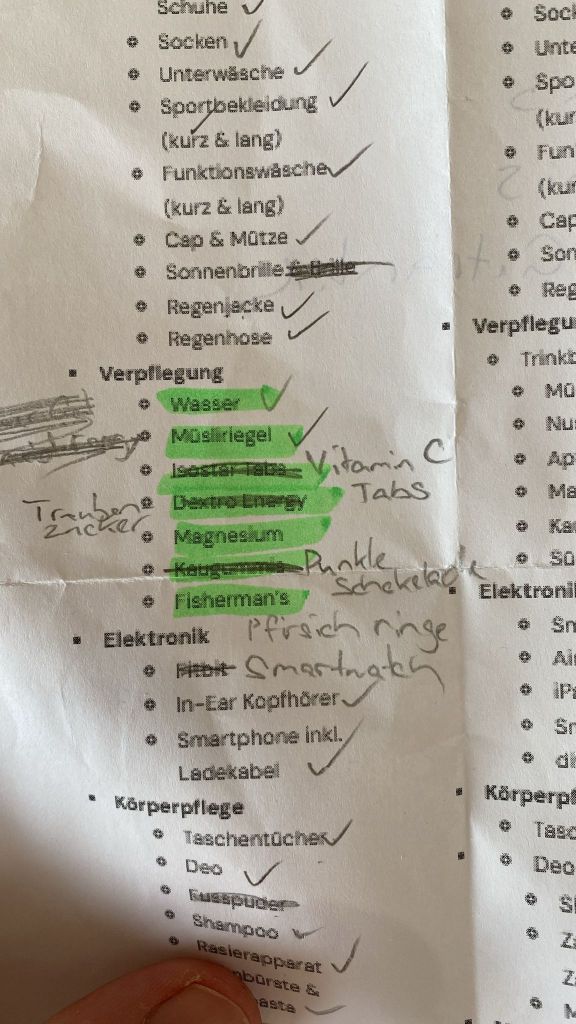 Schuhe
Socken
Unterwäsche
Sportbekleidung
(kurz & lang)
Funktionswäsche
(kurz & lang)
Cap & Mütze
Sonnenbrille & Brille
Regenjacke
Regenhose
Verpflegung
Wasser
Müsliriegel
Isostar Tabs Vitamin C
Tabs
Dextro Energy
Trauben
zucker
Magnesium
Kaugummis Dunkle
Schokolade
Fisherman's
Pfirsich ringe
Elektronik
Fitbit Smartwatch
In-Ear Kopfhörer
Smartphone inkl.
Ladekabel
Körperpflege
Taschentücher
Deo
Fusspuder
Shampoo
Rasierapparat
nbürste &
asta
Sock
Unte
Spo
(kur
Fun
(kur
Cap
Son
Reg
Verpflegu
Trinkb
Mü
Nu
Ap
Ma
Kau
Sü
Elektronik
Sm
Air
iPa
Sm
di
Körperpf
Tasc
Deo